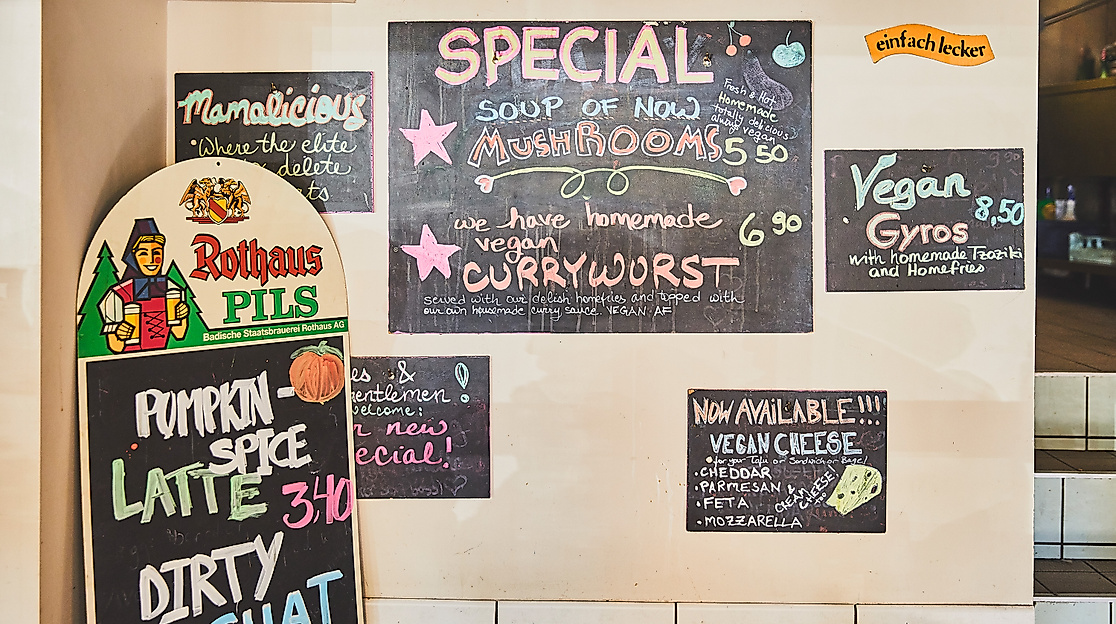 Mamalicious
• Where the elite
delete
SPECIAL
SOUP OF NOW
MUSHROOMS 5 50
Fresh & Hot
Homemade
totally delicious
always vegan
we have homemade 6 90
vegan
CURRYWURST
served with our delish homefries and topped with
our own housemade curry sauce. VEGAN AF
einfach lecker
Vegan
8,50
Gyros
with homemade Tzaziki
and Homefries
Rothaus
PILS
Badische Staatsbrauerei Rothaus AG
PUMPKIN-
SPICE
LATTE 3,40
DIRTY
es &
entlemen
elcome:
new
ecial!
NOW AVAiLABLE!!!
VEGAN CHEESE
for your Tofu or Sandwich or Bagel!
• CHEDDAR
• PARMESAN &
• FETA
• MOZZARELLA
CREAM CHEESE!
TOO